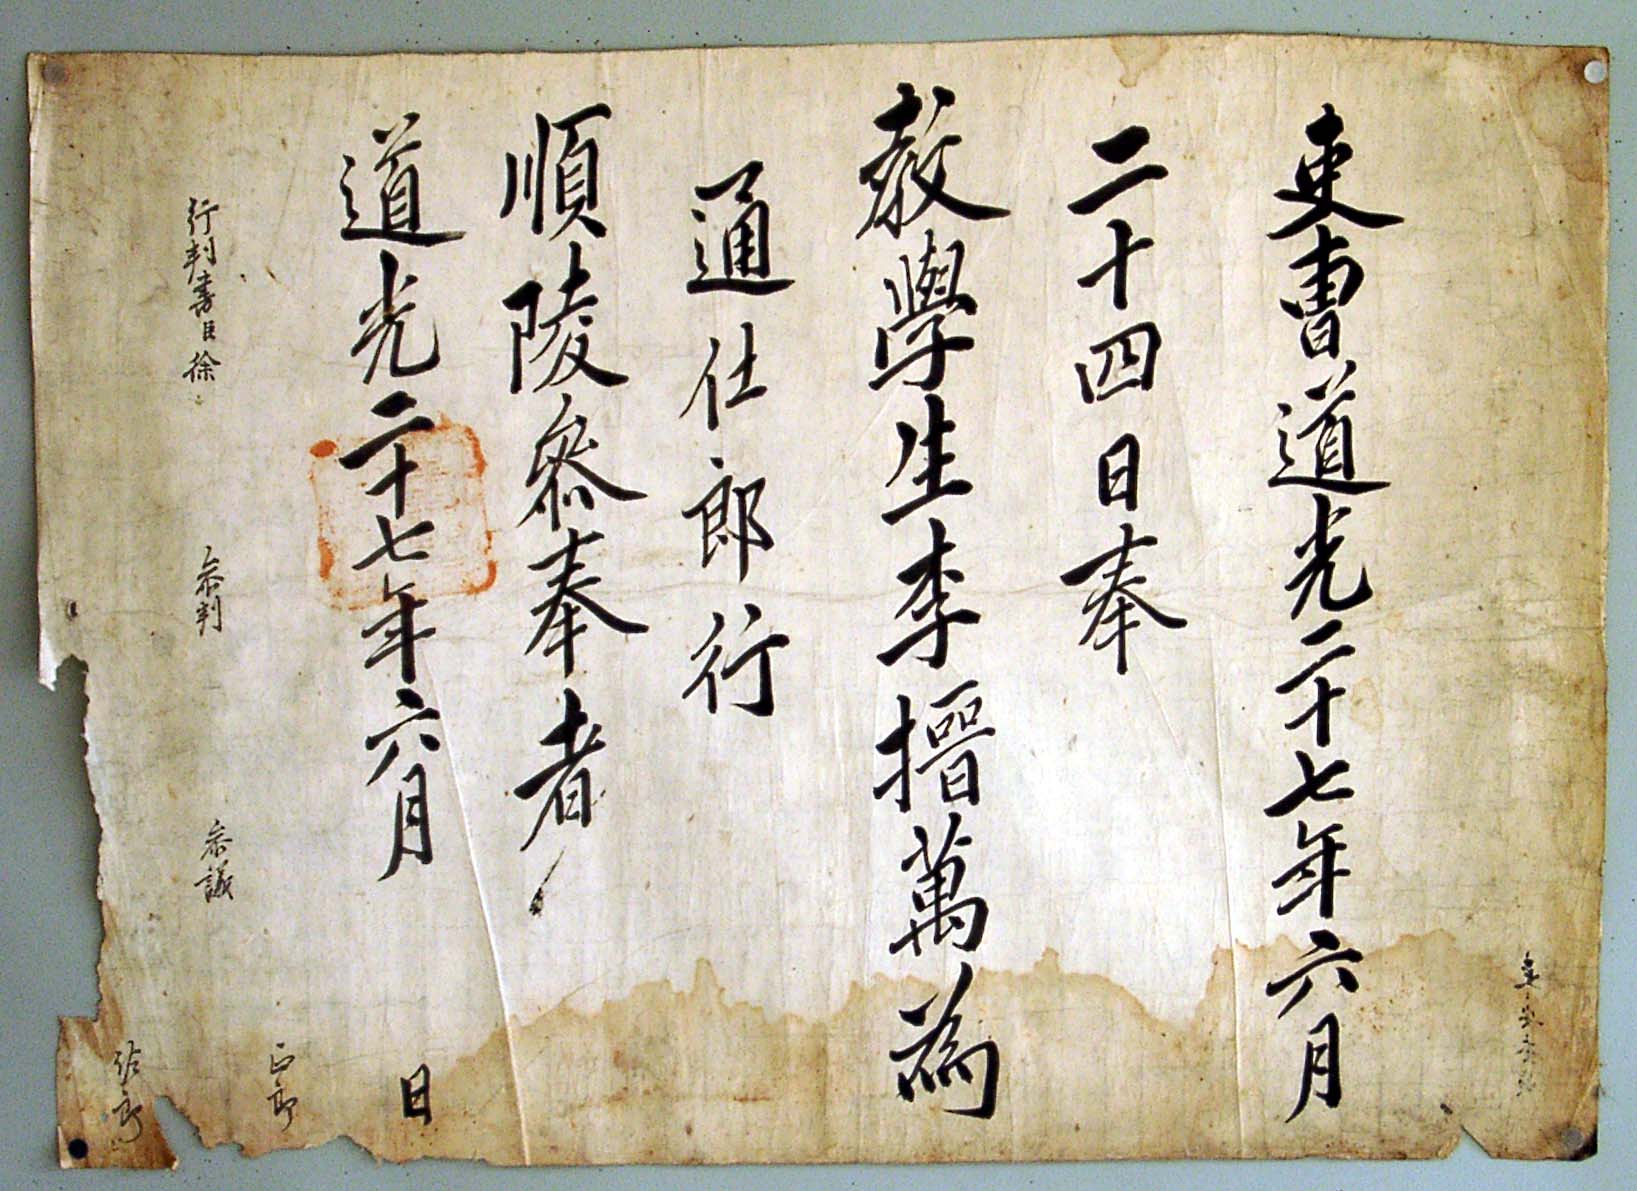 吏曹道光二十七年六月
二十四日奉
敎學生李㨯萬爲
通仕郎行
順陵參奉者
道光二十七年六月 日
行判書臣徐
參判
參議
正郎
佐郎